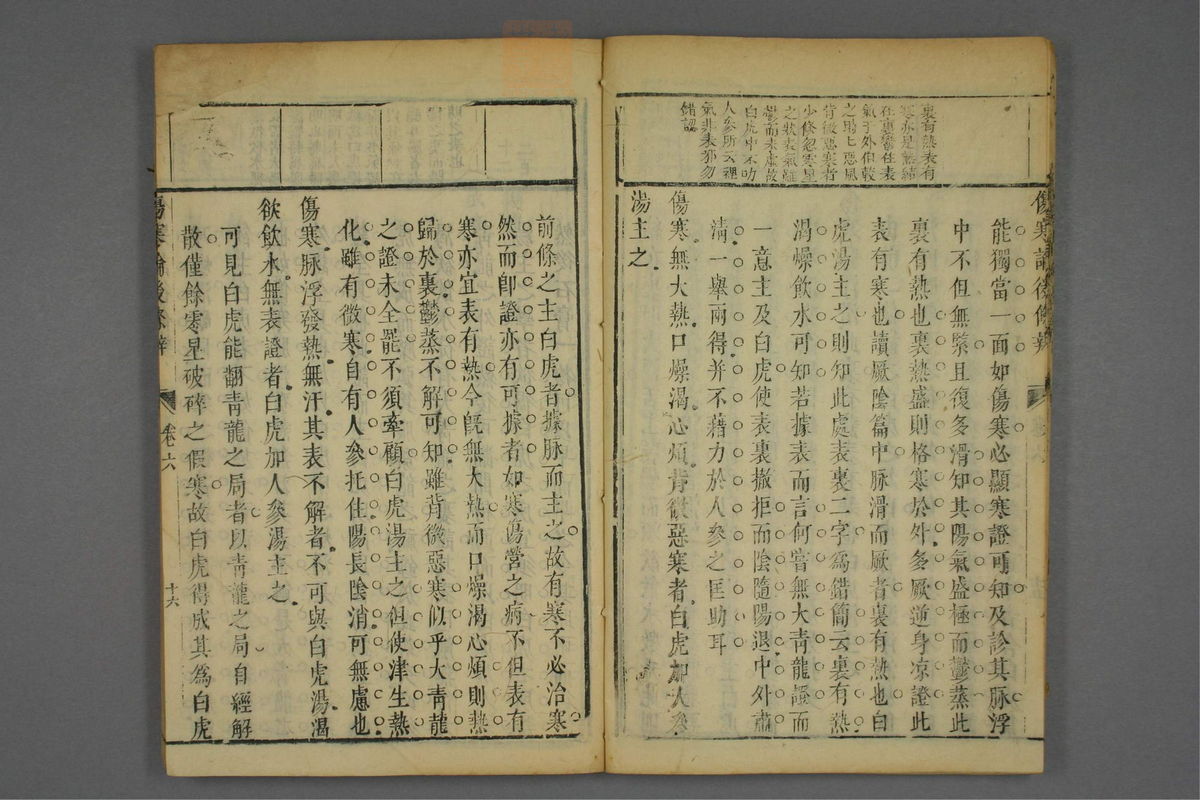 裏有熱表有
寒亦是熱結
在裏鬱住表
氣于外但較
之時七惡風
背微惡寒者
少條忽寒星
之狀表氣雖
鬱而未虛故
白虎中不叻
人參所云裡
氣非表邪勿
錯認
能獨當一面如傷寒必顯寒證可知及診其脈浮
中不但無緊且復多滑知其陽氣盛極而鬱蒸此
裏有熱也裏熱盛則格寒於外多厥逆身凉證此
表有寒也讀厥陰篇中脈滑而厥者裏有熱也白
虎湯主之則知此處表裏二字爲錯簡云裏有熱
渴燥飲水可知若據表而言何嘗無大青龍證而
一意主及白虎使表裏撤拒而陰隨陽退中外肅
清一舉兩得并不藉力於人參之匡助耳
傷寒無大熱口燥渴心煩背微惡寒者白虎加人參
湯主之
前條之主白虎者據脈而主之故有寒不必治寒
然而卽證亦有可據者如寒傷營之病不但表有
寒亦宜表有熱今旣無大熱而口燥渴心煩則熱
歸於裏鬱蒸不解可知雖背微惡寒似乎大青龍
之證未全罷不須牽顧白虎湯主之但使津生熱
化雖有微寒自有人參托住陽長陰消可無慮也
傷寒脈浮發熱無汗其表不解者不可與白虎湯渴
欲飲水無表證者白虎加人參湯主之
可見白虎能翻青龍之局者以青龍之局自經解
散僅餘零星破碎之假寒故白虎得成其爲白虎
傷寒論後條辨
卷六
十六